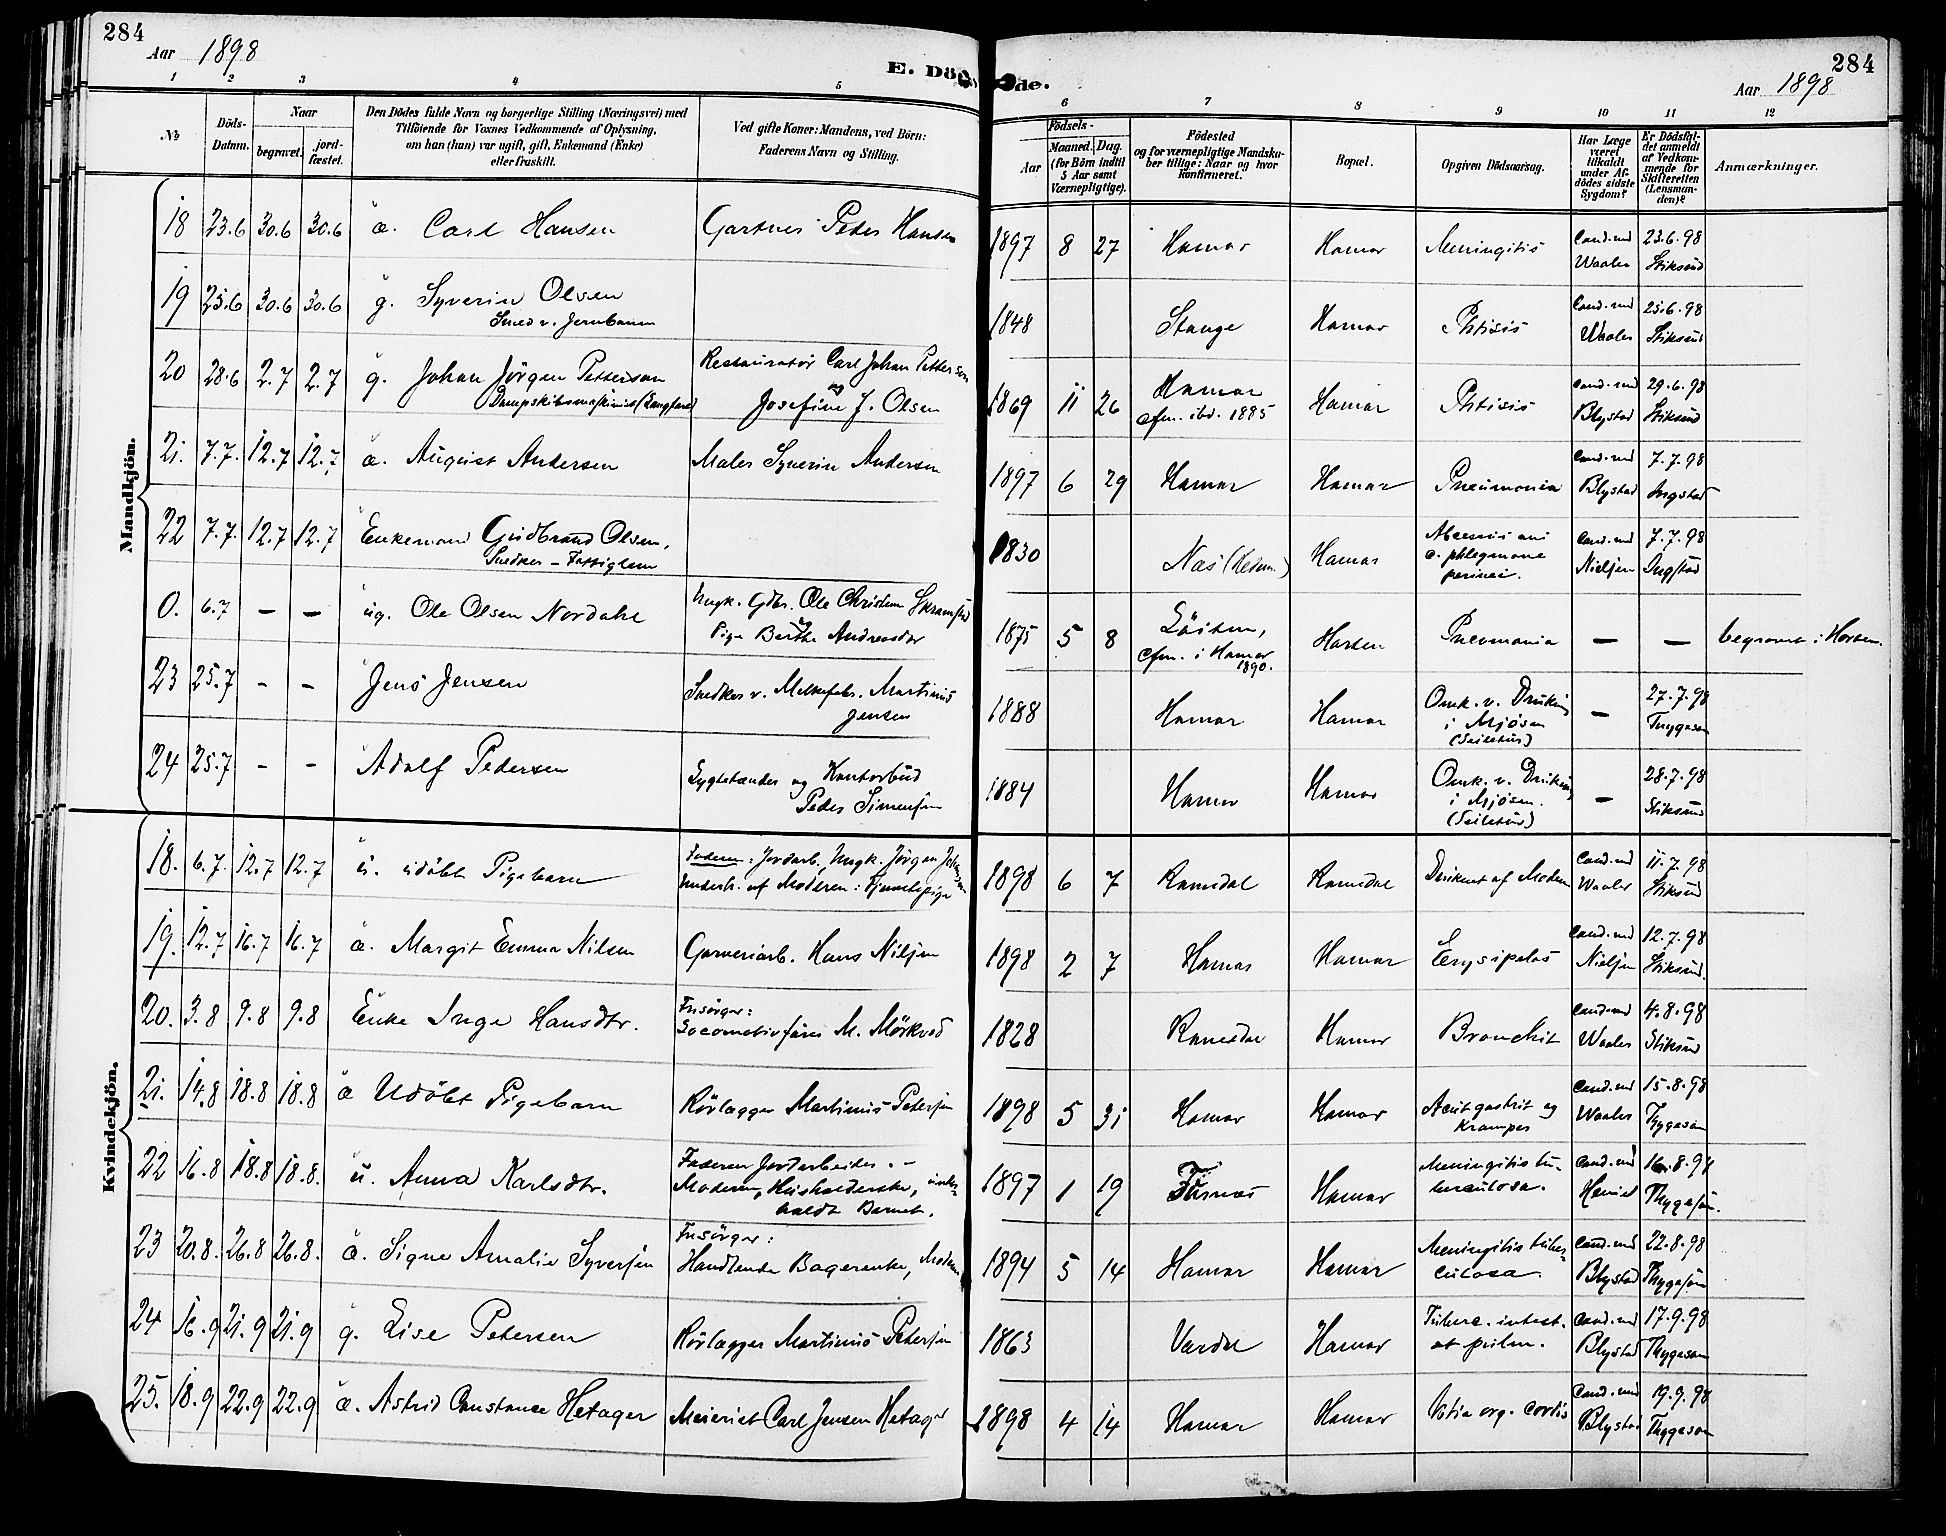 284
Aar 1898
E. Dö
1 2 3 4 5
№
Döds-
Datum.
Naar
begravet.
jord-
fæstet.
Den Dödes fulde Navn og borgerlige Stilling (Næringsvei) med
Tilföiende for Voxnes Vedkommende af Oplysning,
om han (hun) var ugift, gift, Enkemand (Enke)
eller fraskilt.
Ved gifte Koner: Mandens, ved Börn:
Faderens Navn og Stilling.
Mandkjön.
18 23.6 30.6 30.6 æ. Carl Hansen Gartner Peder Hansen
19 25.6 30.6 30.6 g. Syverin Olsen
Smed v. Jernbanen
20 28.6 2.7 2.7 g. Johan Jörgen Pettersen Restauratör Carl Johan Pettersen
og
Josefine J. Olsen
21. 7.7. 12.7 12.7 æ. August Andersen Maler Syverin Andersen
22 7.7. 12.7 12.7 Enkemand Gudbrand Olsen,
Snedker - Fattiglem
0. 6.7 – – ug. Ole Olsen Nordahl Ungk. Gdbr. Ole Christian Skramstad
og
Pige Berthe Andreasdr
23 25.7 - - Jens Jensen Snedker v. Melkefabr. Martinius
Jensen
24 25.7 - - Adolf Pedersen Lygtetænder og Kontorbud
Peder Simensen
Kvindekjön.
18. 6.7 12.7 12.7 u. udöbt Pigebarn Faderen: Jordarb. Ungk. Jörgen
Underh. af Moderen: Tjenestepige
19. 12.7 16.7 16.7 æ. Margit Emma Nilsen Garveriarb. Hans Nilsen
20. 3.8 9.8 9.8 Enke Inge Hansdtr. Forsörger:
Locomotivförer M. Mörkved
21. 14.8 18.8 18.8 æ Udöbt Pigebarn Rörlægger Martinius Petersen
22 16.8 18.8 18.8. u. Anna Karlsdtr. Faderen Jordarbeider. -
Moderen, Husholderske, under-
holdt Barnet.
23 20.8. 26.8 26.8. æ. Signe Amalie Syversen Forsörger:
Handlende Bagerenke, Moderen
24 16.9 21.9 21.9 g. Lise Petersen Rörlægger Martinius Petersen
25. 18.9 22.9 22.9 æ. Astrid Constance Hetager Meieriet Carl Jensen Hetager
284
de.
Aar 1898
6 7 8 9 10 11 12
Födsels-
Aar
Maaned. Dag.
(for Börn indtil
5 Aar samt
Værnepligtige).
Födested
og for værnepligtige Mandska-
ber tillige: Naar og hvor
Konfirmeret.
Bopæl.
Opgiven Dödsaarsag.
Har Læge
været
tilkaldt
under Af-
dödes sidste
Sygdom?
Er Dödsfal-
det anmeldt
af Vedkom-
mende for
Skifteretten
(Lensman-
den)?
Anmærkninger.
1897 8 27 Hamar Hamar Meningitis Cand. med Waaler 23.6.98 Stiksrud
1848 Stange Hamar Phtisis Cand. med Waaler 25.6.98 Stiksrud
1869 11 26 Hamar
Cfm. ibd. 1885 Hamar Phtisis Cand. med Blystad 29.6.98 Stiksrud
1897 6 29 Hamar Hamar Pneumonia Cand. med Blystad 7.7.98 Ingstad
1830 Næs (Hedm.) Hamar Abcessus ani
c. phlegmone
perinei. Cand. med Nielsen 7.7.98 Ingstad
1875 5 8 Löiten,
Cfm. i Hamar
1890. Horten Pneomonia – – begravet i Horten.
1888 Hamar Hamar Omk. v. Drukning
i Mjösen
(Seiletur) – 27.7.98 Thygeson
1884 Hamar Hamar Omk. v. Drukning
i Mjösen.
(Seiletur) – 28.7.98 Stiksrud
1898 6 7 Ramsdal Ramsdal Cand. med Waaler 11.7.98 Stiksrud
1898 2 7 Hamar Hamar Erysipelas Cand. med Nielsen 12.7.98 Stiksrud.
1828 Romsdal Hamar Bronchit Cand. med Waaler 4.8.98 Stiksrud
1898 5 31 Hamar Hamar Acut gastrit og
Kramper Cand. med Waaler 15.8.98 Thygeson
1897 1 19 Furnæs Hamar Meningitis tu-
berculosa. Cand. med 16.8.98 Thygesön.
1894 5 14 Hamar Hamar Meningitis tuber-
culosa Cand. med Blystad 22.8.98 Thygesön
1863 Vardal Hamar Tuberc. intest.
et pulm. Cand. med Blystad 17.9.98 Thygeson
1898 4 14 Hamar Hamar Vitia org. cordis Cand. med Blystad 19.9.98 Thygeson